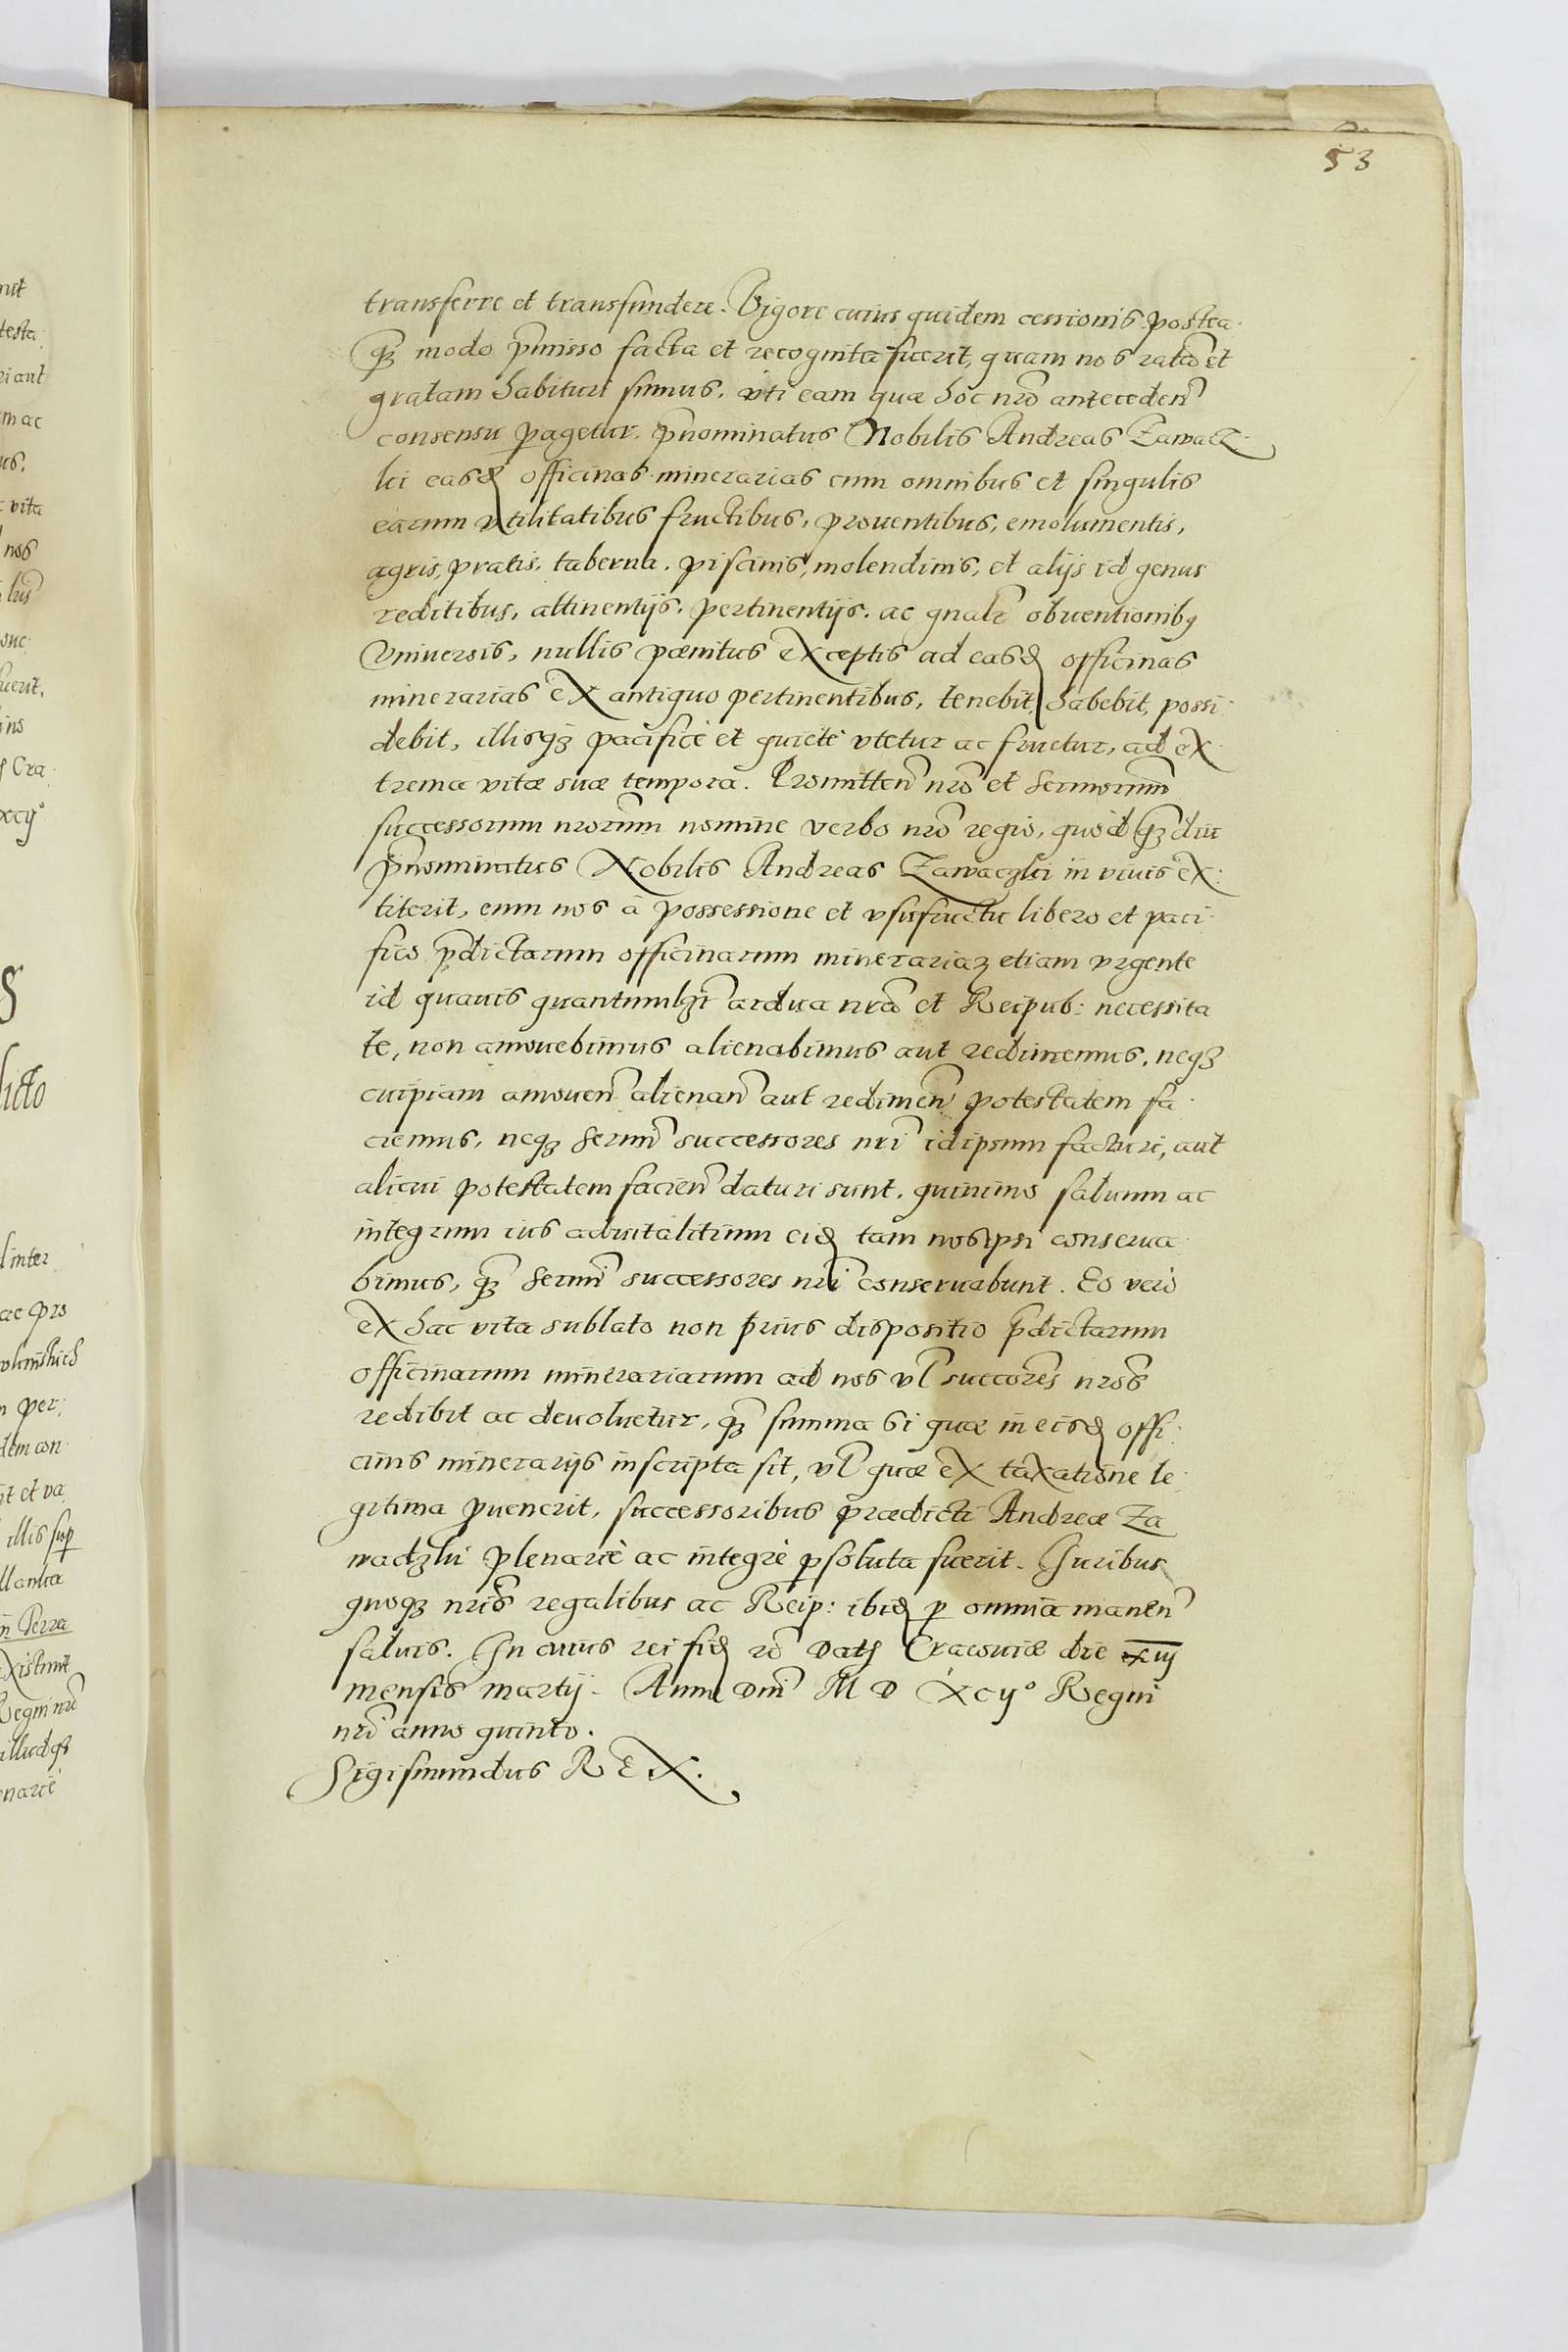 53
transferre et transfundere. Vigore cuius quidem cessionis postea
qʒ modo p̄misso facta et recognita fuerit, quam nos ratā et
gratam habituri sumus, vti eam quæ hoc nrō anteceden̄
consensu pagetur, p̄nominatus Nobilis Andreas Zawacz
ki easd officinas minerarias cum omnibus et singulis
earum vtilitatibus fructibus, prouentibus, emolumentis,
agris, pratis, taberna, piscinis, molendinis, et alijs id genus
reditibus, attinentijs, pertinentijs, ac gnalr̄ obuentionibꝫ
Vniuersis, nullis pœnitus exceptis ad easd officinas
minerarias ex antiquo pertinentibus, tenebit, habebit, possi
debit, illisqʒ pacifice et quietè vtetur ac fruetur, ad ex
trema vitæ suæ tempora. Promitten̄ nrō et sermorum̄
successorum nrorum nomine verbo nrō regio, quod qʒdiu
p̄nominatus Nobilis Andreas Zawaczki in viuis ex
titerit, eum nos à possessione et vsufructu libero et paci
fico p̄dictarum officinarum minerariaʒ etiam vrgente
id quauis quantumlʒt̄ ardua nrā et Reipub: necessita
te, non amouebimus alienabimus aut redimemus, neqʒ
cuipiam amouen̄ alienan̄ aut redimen̄ potestatem fa
ciemus, neqʒ sermi̅ successores nri̅ idipsum facturi, aut
alicui potestatem facien̄ daturi sunt, quinimo saluum ac
integrum ius aduitalitium eid tam nosipsi conserua
bimus, qʒ̄ sermi̅ successores nri̅ conseruabunt. Eo verò
ex hac vita sublato non prius dispositio p̄dictarum
officinarum minerariarum ad nos vl̄ succor̄es nros̄
redibit ac deuoluetur, qʒ̄ summa si quæ in eisd offi
cinis minerarijs inscripta sit, vl̄ quæ ex taxatione le
gitima puenerit, successoribus prædicti Andreæ Za
wadzki plenariè ac integrè psoluta fuerit. Iuribus
quoqʒ nris̄ regalibus ac Reip: ibid p omnia manen̄
saluis. In cuius rei fid rō Datʒ Cracouiæ die xij
mensis martij. Anno Dni̅ M D Xcij° Regni
nri̅ anno quinto.
Sigismundus REX.